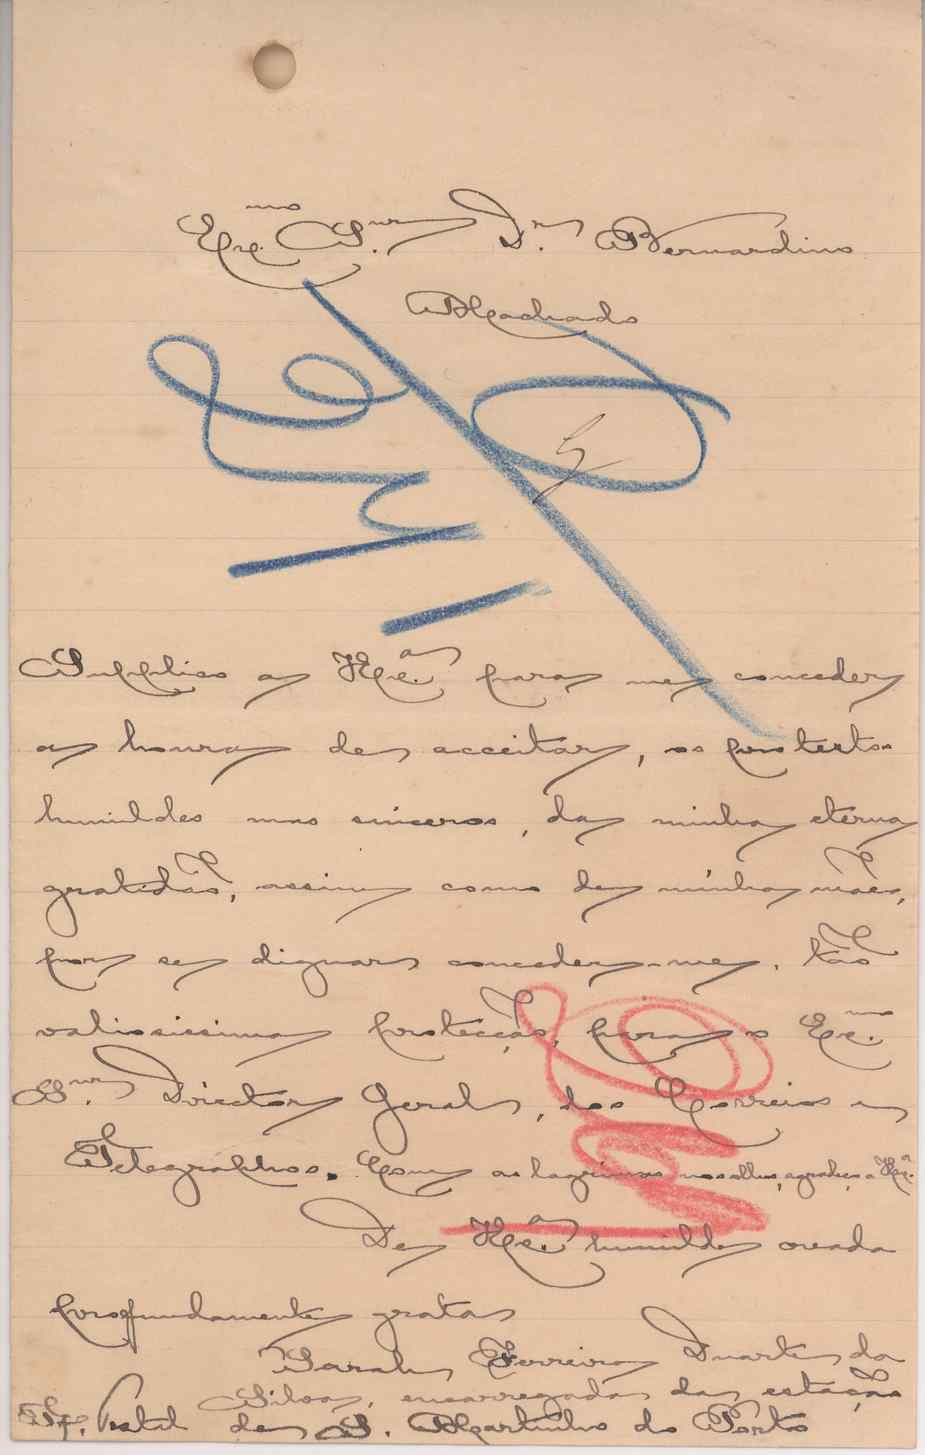 Exc.mo S.nr Dr. Bernardino
Machado
Supplico a V. Ex.a para me conceder
a honra de acceitar, os protestos
humildes mas sinceros, da minha eterna
gratidão, assim como de minha mãe,
por se dignar conceder-me, tão
valiosissima protecção, para o Ex.mo
S.nr Director Geral, dos Correios e
Telegraphos. Com as lagrimas nos olhos, agradeço a V. Ex.a
De V. Ex.a humilde creada
profundamente grata
Sarah Ferreira Duarte da
Silva, encarregada da estação
Postal de S. Martinho do Porto